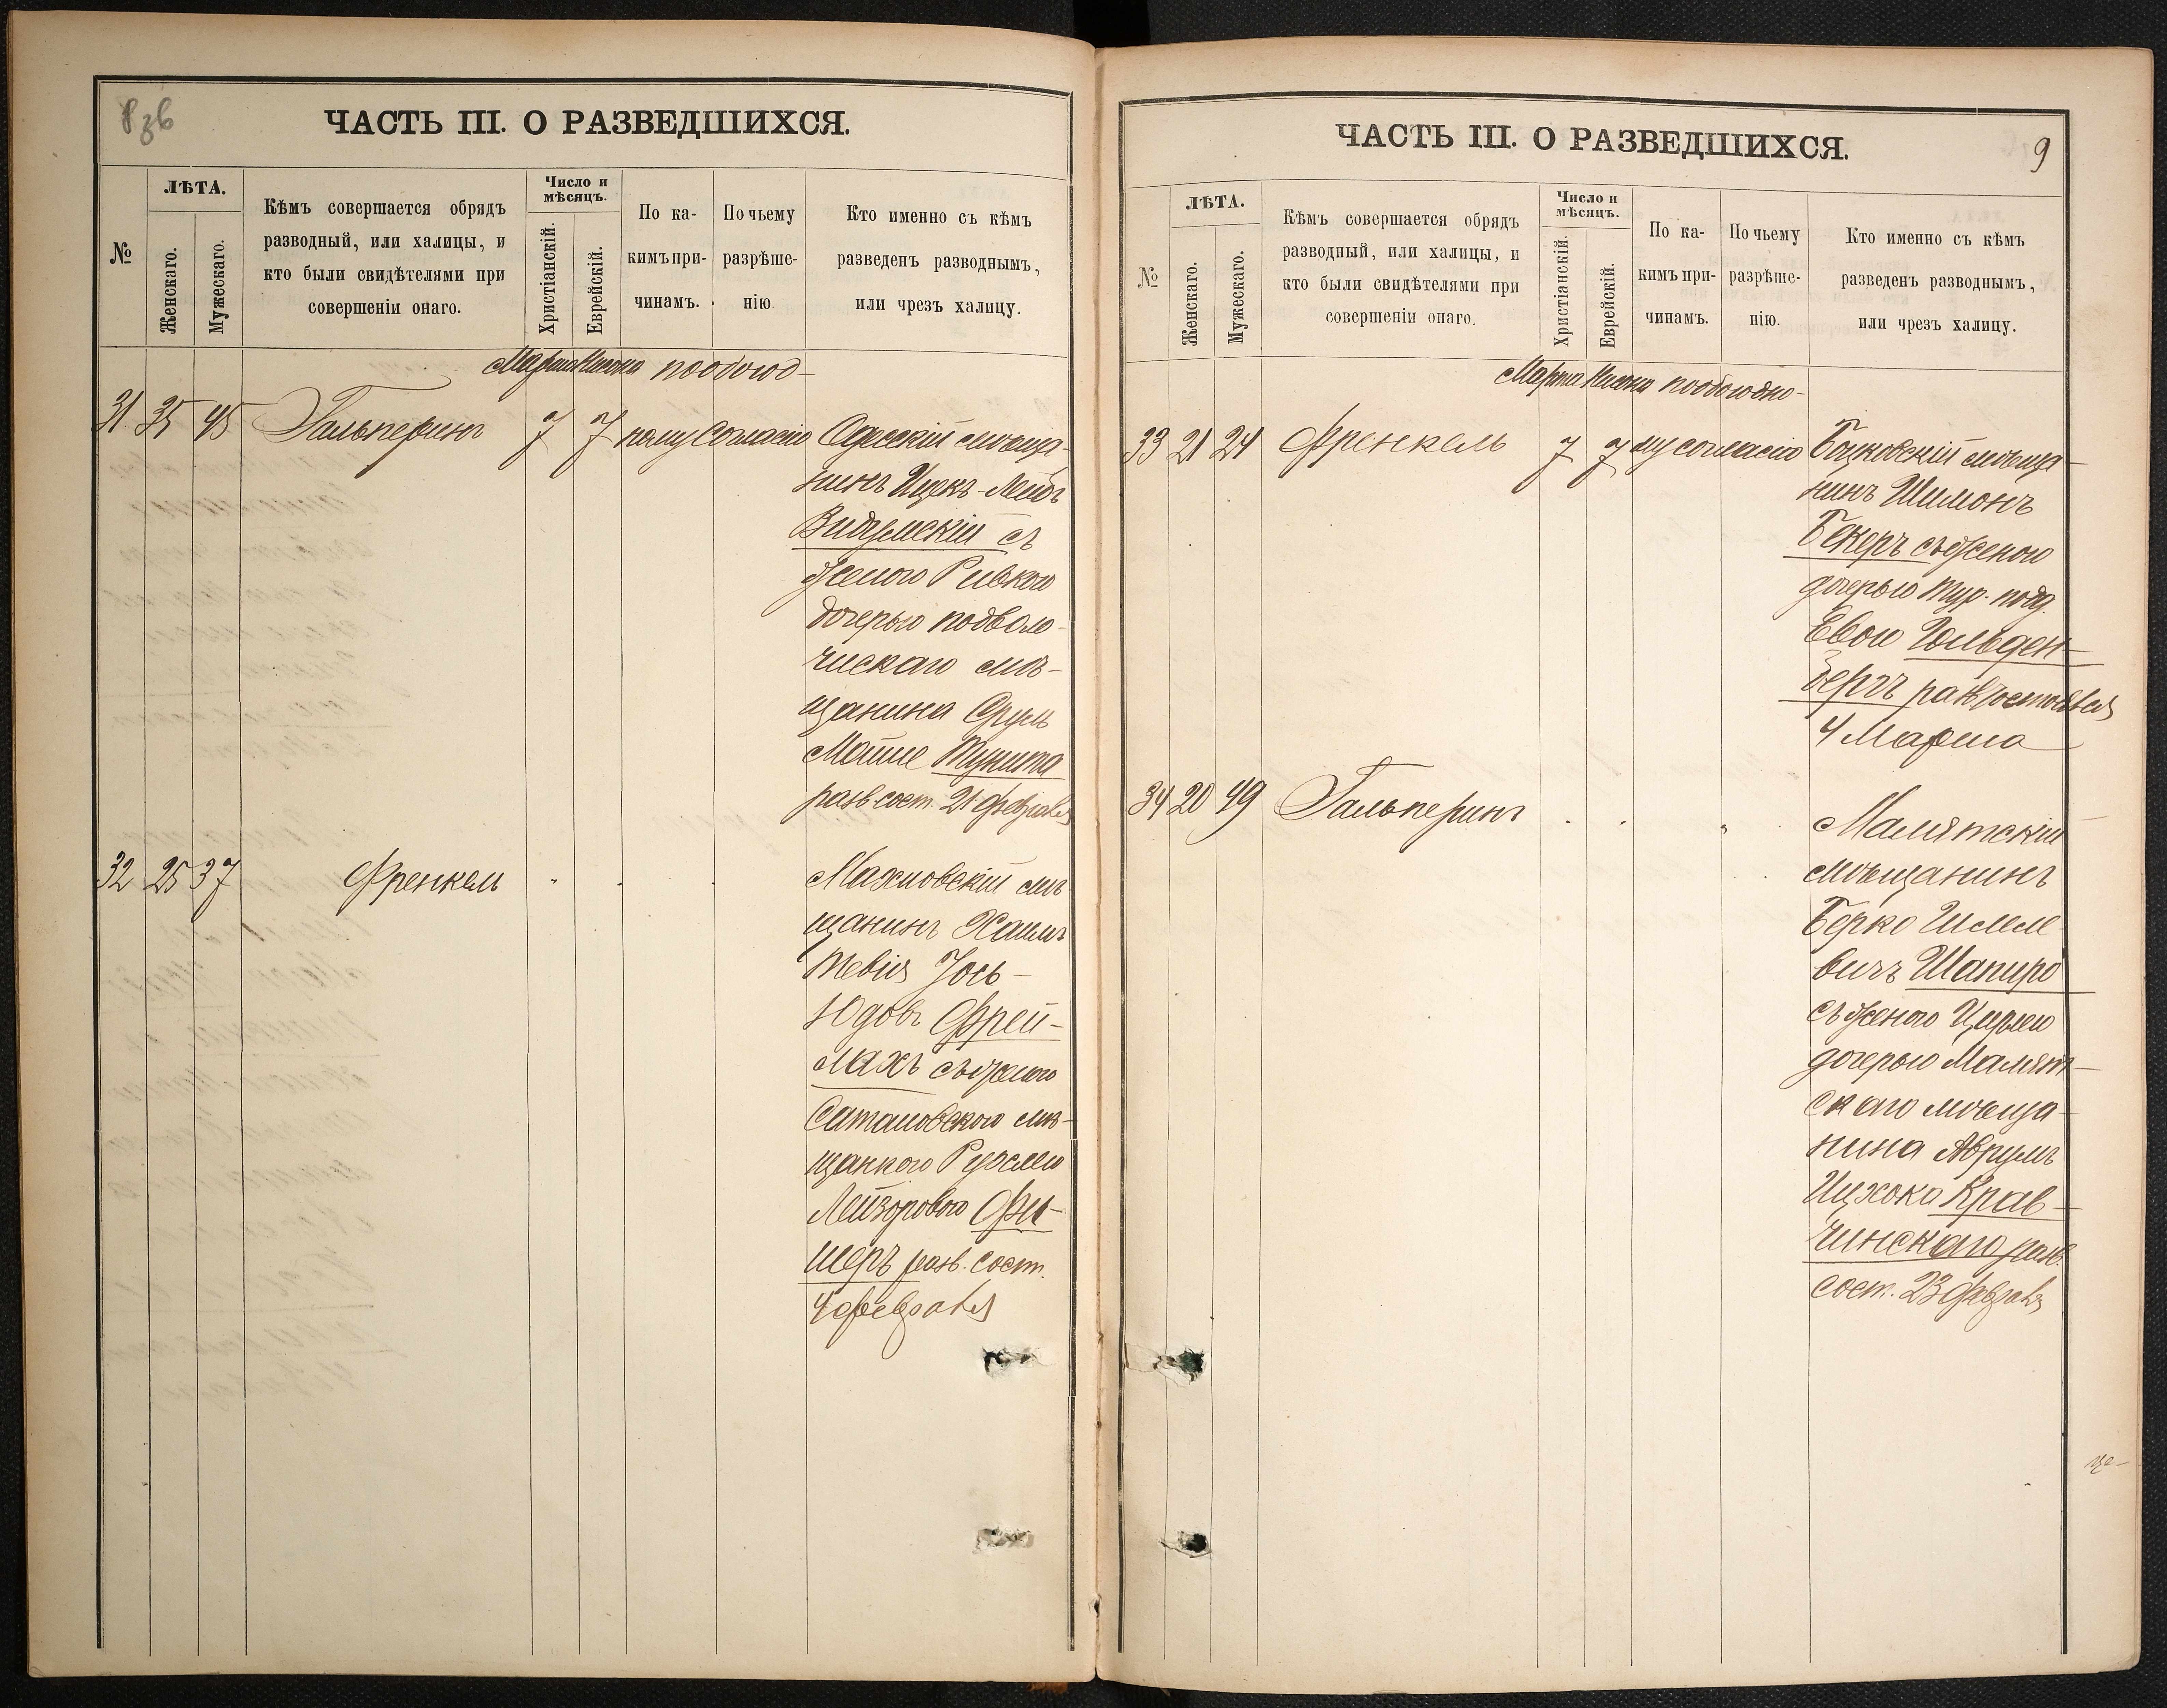 ЧАСТЬ III. О РАЗВЕДШИХСЯ.
№
ЛѢТА.
Женскаго.
Мужескаго.
Кѣмъ совершается обрядъ
разводный, или халицы, и
кто были свидѣтелями при
совершеніи онаго.
Число и
мѣсяцъ.
Христіанскій.
Еврейскій.
По ка-
кимъ при-
чинамъ.
По чьему
разрѣше-
нію.
Кто именно съ кѣмъ
разведенъ разводнымъ,
или чрезъ халицу.
Марта Нисона пообоюд-
31 35 45 Гальперинъ 7 7 ному согласію Одесскій мѣща-
нинъ Ицекъ-Лейбъ
съ
женою Ривкою
дочерью подволо-
чискаго мѣ-
щанина Сруль
Мойше Тунита
разв. сост. 21 февраля
32 25 37 Френкель Махновскій мѣ-
щанинъ Хаимъ
Тевія Іось-
Юдовъ Фрей-
махъ съ женою
Сатановскою мѣ-
щанкою Рухлею
Лейзоровою Фи-
шеръ разв. сост.
4 февраля
ЧАСТЬ III. О РАЗВЕДШИХСЯ.
9
№
ЛѢТА.
Женскаго.
Мужескаго.
Кѣмъ совершается обрядъ
разводный, или халицы, и
кто были свидѣтелями при
совершеніи онаго.
Число и
мѣсяцъ.
Христіанскій.
Еврейскій.
По ка-
кимъ при-
чинамъ.
По чьему
разрѣше-
нію.
Кто именно съ кѣмъ
разведенъ разводнымъ,
или чрезъ халицу.
Марта Нисона пообоюдно-
33 21 24 Френкель 7 7 му согласію мѣща-
нинъ Шимонъ
Бекеръ съ женою
дочерью тур. подд.
Евою Гольден-
бергъ состоялся
4 Марта
34 20 49 Гальперинъ Малятскій
мѣщанинъ
Берко Шмеле-
вичъ Шапиро
съ женою Цирлею
дочерью Малят-
скаго мѣща-
нина Аврумъ
Ицхока Крав-
чинскаго разв.
сост. 23 февраля